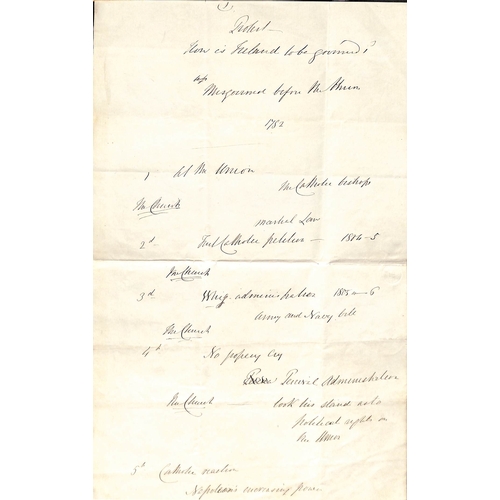 Protest —
How is Ireland to be governed?
Misgoverned before the Union
1782
1 At the Union
The Catholic bishops
The Church
martial Law
2d — First Catholic petition — 1804-5
The Church
3d Whig administration 1805 — 6
Army and Navy bill
The Church
4th No popery cry
Percival Administration
The Church took his stand as to
political rights on
the Union
5th Catholic reaction
Napoleon's increasing power